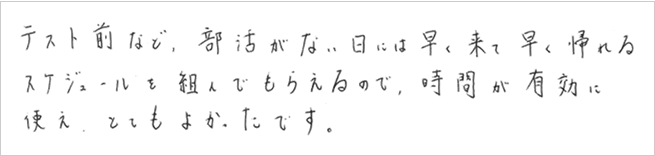 テスト前など、部活がない日には早く来て早く帰れる
スケジュールを組んでもらえるので、時間が有効に
使え、とてもよかったです。